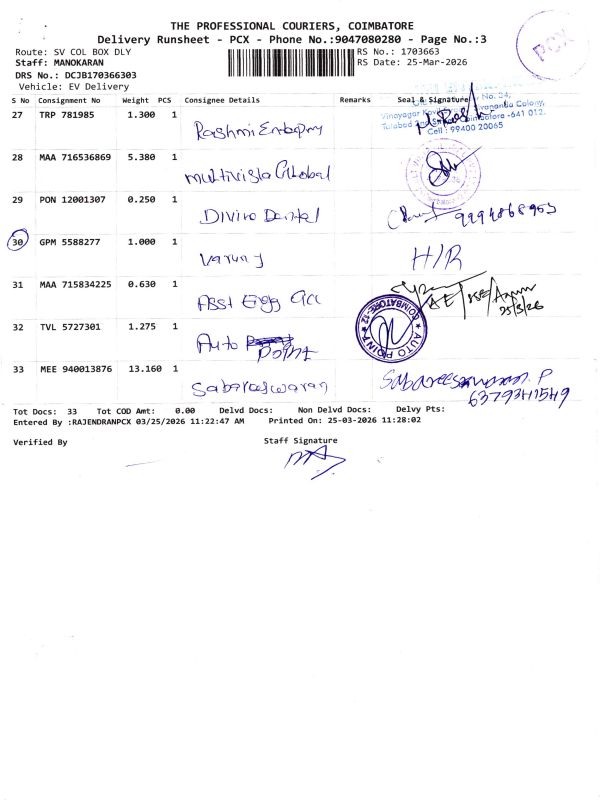 THE PROFESSIONAL COURIERS, COIMBATORE
Delivery Runsheet - PCX - Phone No.:9047080280 - Page No.:3
PCX
Route: SV COL BOX DLY
RS No.: 1703663
Staff: MANOKARAN
RS Date: 25-Mar-2026
DRS No.: DCJB170366303
Vehicle: EV Delivery
S No Consignment No Weight PCS Consignee Details Remarks Seal & Signature
27 TRP 781985 1.300 1
No. 34,
Sivananda Colony,
Tatabad 2nd Coimbatore -641 012.
Cell : 99400 20065
28 MAA 716536869 5.380 1 Multivista Global
29 PON 12001307 0.250 1 Divine Dental 9994868953
30 GPM 5588277 1.000 1 Varun J H/R
31 MAA 715834225 0.630 1 Asst Engg
AE/JSE/
25/3/26
32 TVL 5727301 1.275 1 Auto Point
AUTO POINT ★ COIMBATORE-12 ★
33 MEE 940013876 13.160 1 Sabareeswaran Sabareeswaran. P
6379341549
Tot Docs: 33 Tot COD Amt: 0.00 Delvd Docs: Non Delvd Docs: Delvy Pts:
Entered By :RAJENDRANPCX 03/25/2026 11:22:47 AM Printed On: 25-03-2026 11:28:02
Verified By Staff Signature